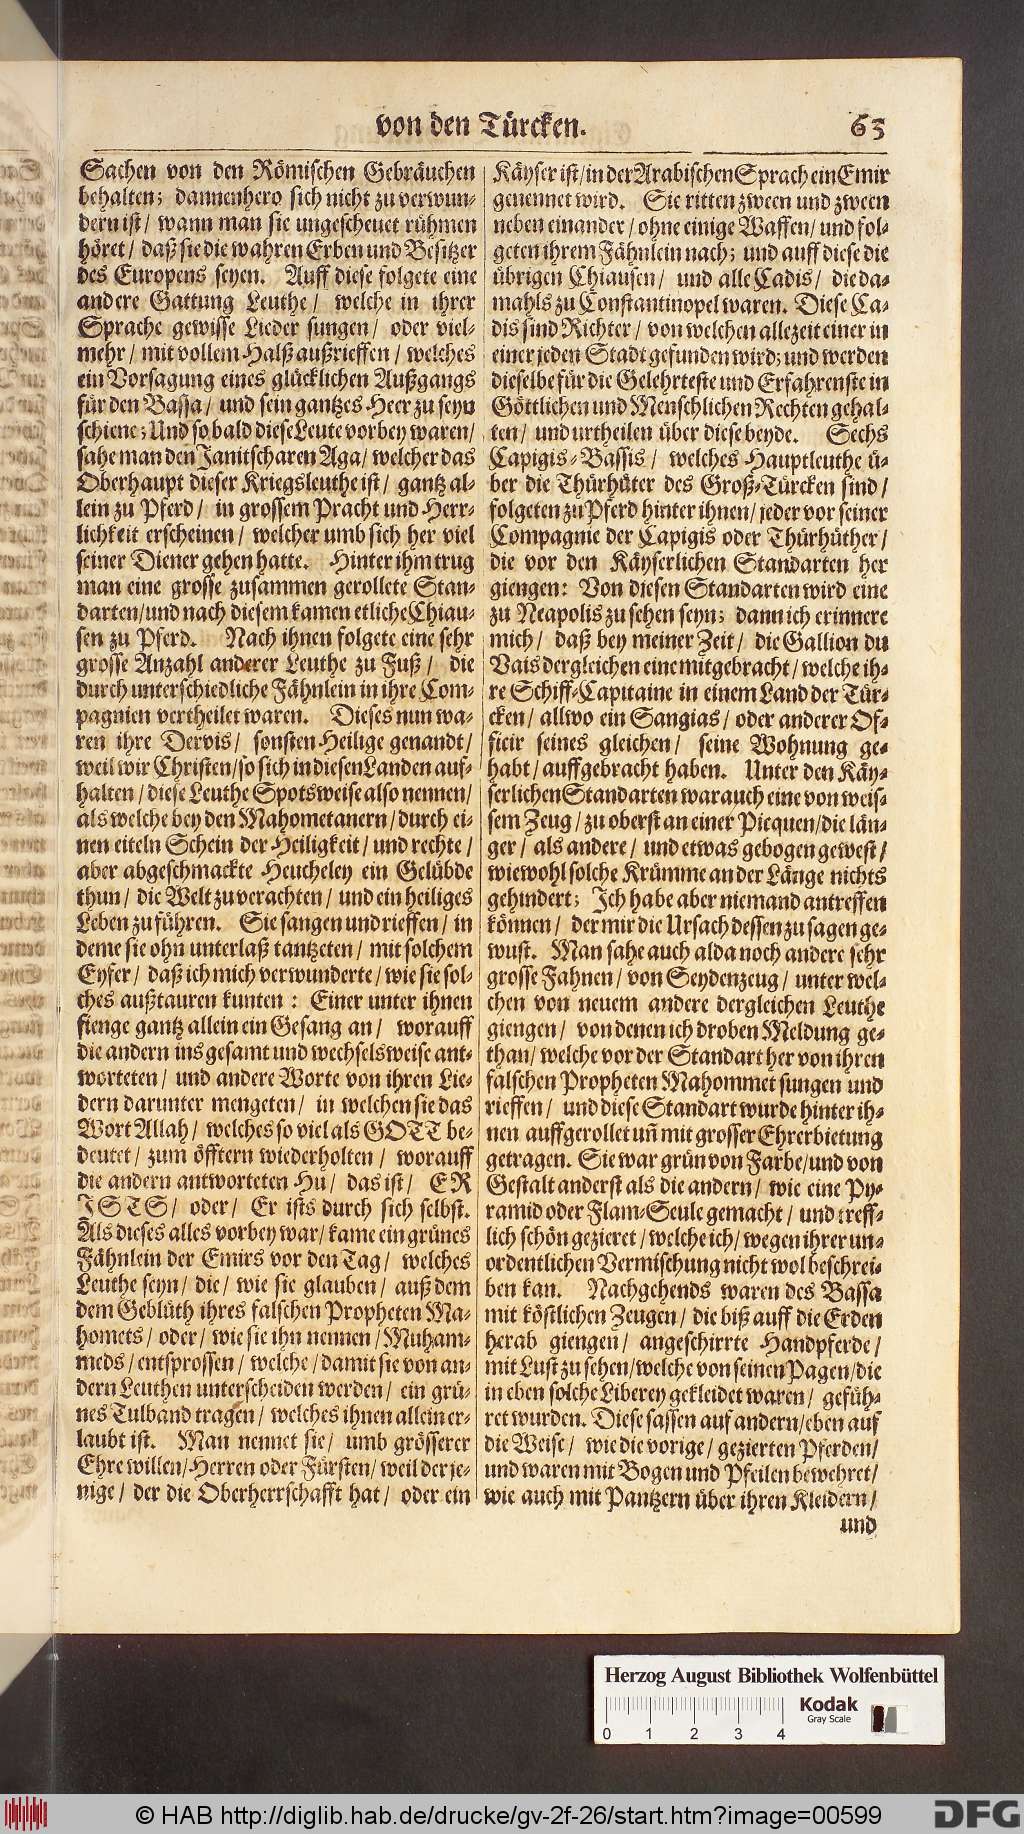 von den Türcken.
63
Sachen von den Römischen Gebräuchen
behalten; dannenhero sich nicht zu verwun-
dern ist/ wann man sie ungescheuet rühmen
höret/ daß sie die wahren Erben und Besitzer
des Europens seyen. Auff diese folgete eine
andere Gattung Leuthe/ welche in ihrer
Sprache gewisse Lieder sungen/ oder viel-
mehr/ mit vollem Halß außrieffen/ welches
ein Vorsagung eines glücklichen Außgangs
für den Bassa/ und sein gantzes Heer zu seyn
schiene; Und so bald diese Leute vorbey waren/
sahe man den Janitscharen Aga/ welcher das
Oberhaupt dieser Kriegsleuthe ist/ gantz al-
lein zu Pferd/ in grossem Pracht und Herr-
lichkeit erscheinen/ welcher umb sich her viel
seiner Diener gehen hatte. Hinter ihm trug
man eine grosse zusammen gerollete Stan-
darten/und nach diesem kamen etliche Chiau-
sen zu Pferd. Nach ihnen folgete eine sehr
grosse Anzahl anderer Leuthe zu Fuß/ die
durch unterschiedliche Fähnlein in ihre Com-
pagnien vertheilet waren. Dieses nun wa-
ren ihre Dervis/ sonsten Heilige genandt/
weil wir Christen/so sich in diesen Landen auf-
halten/ diese Leuthe Spotsweise also nennen/
als welche bey den Mahometanern/ durch ei-
nen eiteln Schein der Heiligkeit/ und rechte/
aber abgeschmackte Heucheley ein Gelübde
thun/ die Welt zu verachten/ und ein heiliges
Leben zu führen. Sie sangen und rieffen/ in
deme sie ohn unterlaß tantzeten/ mit solchem
Eyfer/ daß ich mich verwunderte/ wie sie sol-
ches außtauren kunten: Einer unter ihnen
fienge gantz allein ein Gesang an/ worauff
die andern ins gesamt und wechselsweise ant-
worteten/ und andere Worte von ihren Lie-
dern darunter mengeten/ in welchen sie das
Wort Allah/ welches so viel als GOTT be-
deutet/ zum öfftern wiederholten/ worauff
die andern antworteten Hu/ das ist/ ER
ISTS/ oder/ Er ists durch sich selbst.
Als dieses alles vorbey war/ kame ein grünes
Fähnlein der Emirs vor den Tag/ welches
Leuthe seyn/ die/ wie sie glauben/ auß dem
dem Geblüth ihres falschen Propheten Ma-
homets/ oder/ wie sie ihn nennen/ Muham-
meds/ entsprossen/ welche/ damit sie von an-
dern Leuthen unterscheiden werden/ ein grü-
nes Tulband tragen/ welches ihnen allein er-
laubt ist. Man nennet sie/ umb grösserer
Ehre willen/ Herren oder Fürsten/ weil derje-
nige/ der die Oberherrschafft hat/ oder ein
Käyser ist/ in der Arabischen Sprach ein Emir
genennet wird. Sie ritten zween und zween
neben einander/ ohne einige Waffen/ und fol-
geten ihrem Fähnlein nach; und auff diese die
übrigen Chiausen/ und alle Cadis/ die da-
mahls zu Constantinopel waren. Diese Ca-
dis sind Richter/ von welchen allezeit einer in
einer jeden Stadt gefunden wird; und werden
dieselbe für die Gelehrteste und Erfahrenste in
Göttlichen und Menschlichen Rechten gehal-
ten/ und urtheilen über diese beyde. Sechs
Capigis-Bassis/ welches Hauptleuthe ü-
ber die Thürhüter des Groß-Türcken sind/
folgeten zu Pferd hinter ihnen/ jeder vor seiner
Compagnie der Capigis oder Thürhüther/
die vor den Käyserlichen Standarten her
giengen: Von diesen Standarten wird eine
zu Neapolis zu sehen seyn; dann ich erinnere
mich/ daß bey meiner Zeit/ die Gallion du
Vais dergleichen eine mitgebracht/ welche ih-
re Schiff-Capitaine in einem Land der Tür-
cken/ allwo ein Sangias/ oder anderer Of-
ficir seines gleichen/ seine Wohnung ge-
habt/ auffgebracht haben. Unter den Käy-
serlichen Standarten war auch eine von weis-
sem Zeug/ zu oberst an einer Picquen/ die län-
ger/ als andere/ und etwas gebogen gewest/
wiewohl solche Krümme an der Länge nichts
gehindert; Ich habe aber niemand antreffen
können/ der mir die Ursach dessen zu sagen ge-
wust. Man sahe auch alda noch andere sehr
grosse Fahnen/ von Seydenzeug/ unter wel-
chen von neuem andere dergleichen Leuthe
giengen/ von denen ich droben Meldung ge-
than/ welche vor der Standart her von ihren
falschen Propheten Mahommet sungen und
rieffen/ und diese Standart wurde hinter ih-
nen auffgerollet uñ mit grosser Ehrerbietung
getragen. Sie war grün von Farbe/und von
Gestalt anderst als die andern/ wie eine Py-
ramid oder Flam-Seule gemacht/ und treff-
lich schön gezieret/ welche ich/ wegen ihrer un-
ordentlichen Vermischung nicht wol beschrei-
ben kan. Nachgehends waren des Bassa
mit köstlichen Zeugen/ die biß auff die Erden
herab giengen/ angeschirrte Handpferde/
mit Lust zu sehen/welche von seinen Pagen/die
in eben solche Liberey gekleidet waren/ gefüh-
ret wurden. Diese sassen auf andern/eben auf
die Weise/ wie die vorige/ gezierten Pferden/
und waren mit Bogen und Pfeilen bewehret/
wie auch mit Pantzern über ihren Kleidern/
und
Herzog August Bibliothek Wolfenbüttel
Kodak
Gray Scale
0 1 2 3 4
© HAB http://diglib.hab.de/drucke/gv-2f-26/start.htm?image=00599
DFG